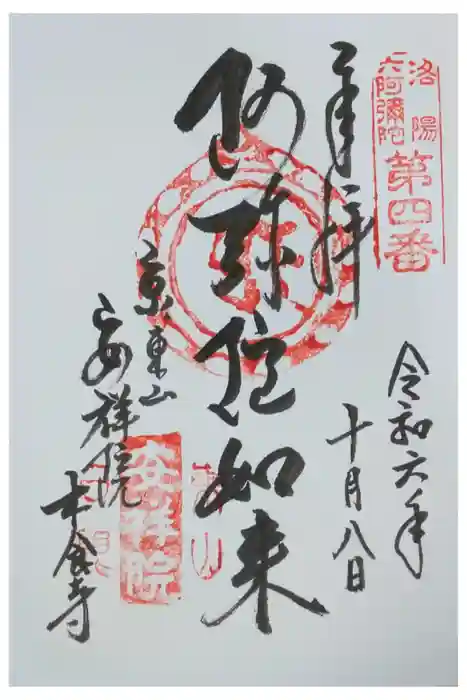 洛陽
六阿彌陀
第四番
奉拝
令和六年
十月八日
阿弥陀如来
京東山
安祥院
木食寺
安祥院